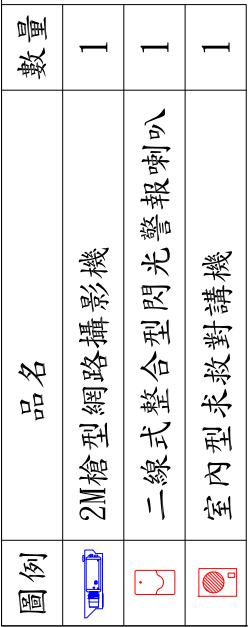 圖例 品名 數量
2M槍型網路攝影機 1
二線式整合型閃光警報喇叭 1
室內型求救對講機 1